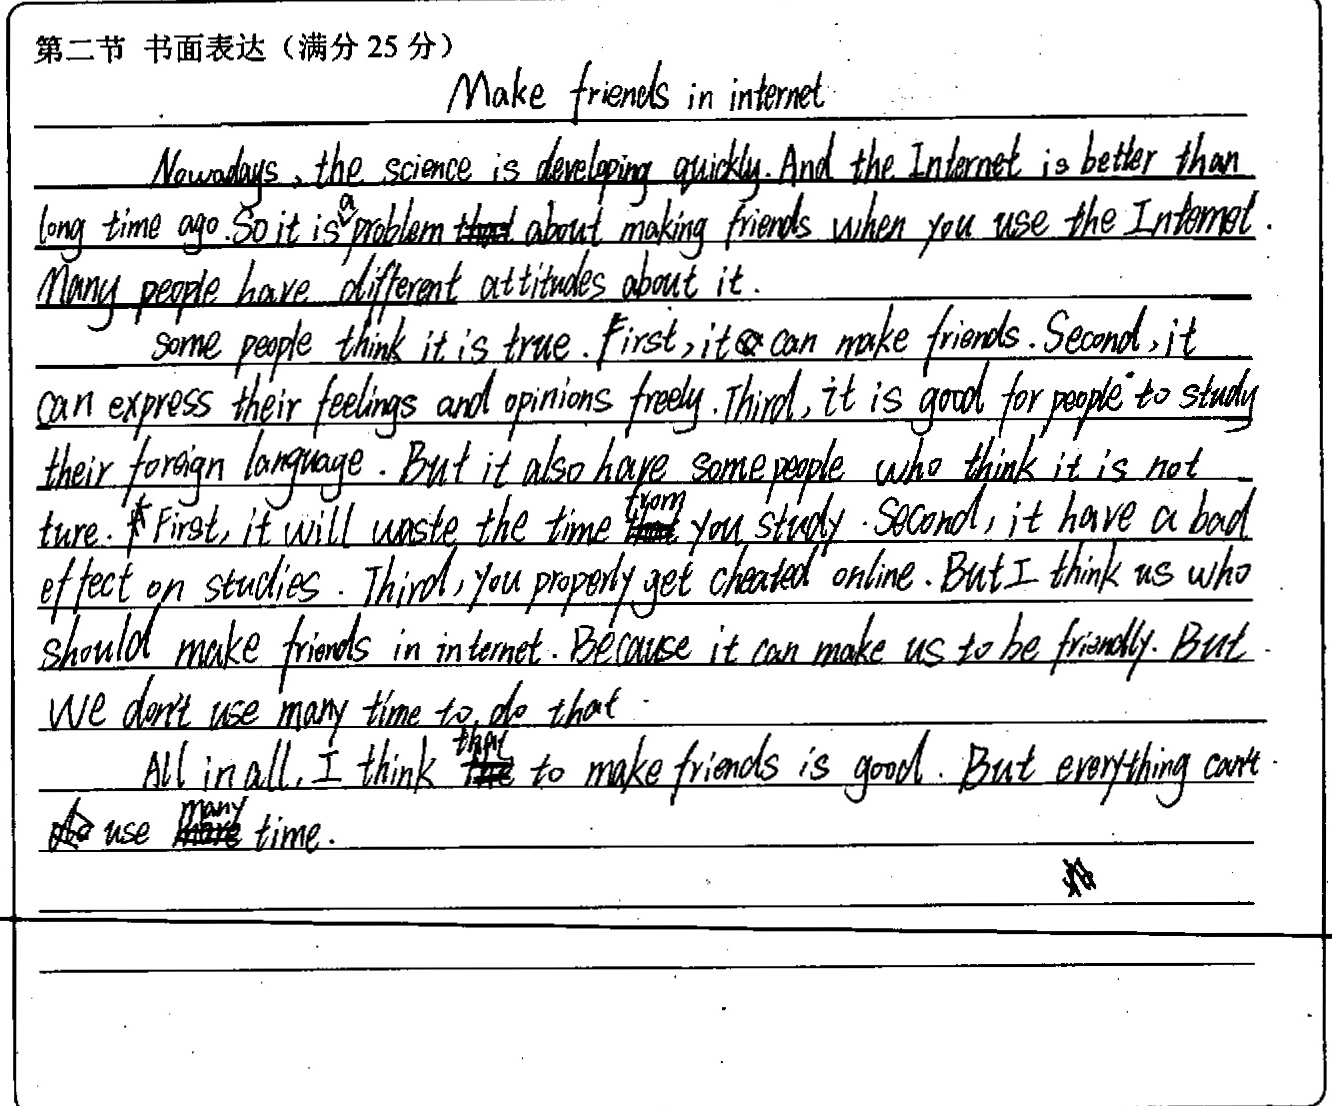 第二节 书面表达（满分 25 分）
Make friends in internet
Nowadays, the science is developing quickly. And the Internet is better than
long time ago. So it is a problem about making friends when you use the Internet.
Many people have different attitudes about it.
Some people think it is true. First, it can make friends. Second, it
can express their feelings and opinions freely. Third, it is good for people to study
their foreign language. But it also have some people who think it is not
ture. First, it will waste the time from you study. Second, it have a bad
effect on studies. Third, you properly get cheated online. But I think us who
should make friends in internet. Because it can make us to be friendly. But
we don't use many time to do that
All in all, I think that to make friends is good. But everything can't
use many time.